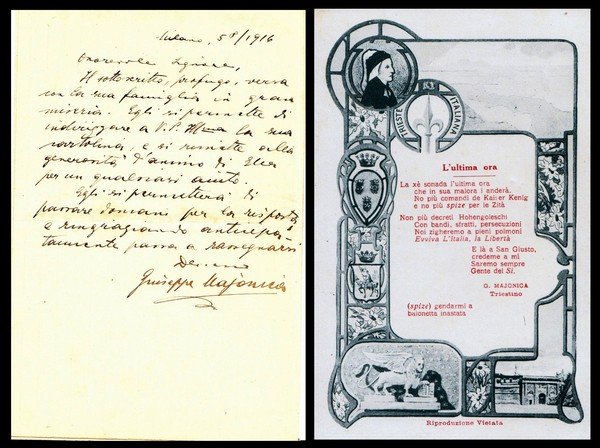 Milano, 5 8/1916
Onorevole Signore,
Il sottoscritto, profugo, versa
con la sua famiglia in gran
miseria. Egli si permette di
indirizzare a V.S. la sua
cartolina, e si rimette alla
generosità d'animo di Ella
per un qualsiasi aiuto.
Egli si permetterà di
passare domani per la risposta
e ringraziando anticipa-
tamente passa a rassegnarsi
Giuseppe Majonica
TRIESTE ITALIANA
L'ultima ora
La xè sonada l'ultima ora
che in sua malora i anderà.
No più comandi de Kaiser Kenig
e no più spize per le Zità
Non più decreti Hohengoleschi
Con bandi, sfratti, persecuzioni
Noi zigheremo a pieni polmoni
Evviva L'Italia, la Libertà
E là a San Giusto,
credeme a mi
Saremo sempre
Gente del Si.
G. MAJONICA
Triestino
(spize) gendarmi a
baionetta inastata
Riproduzione Vietata